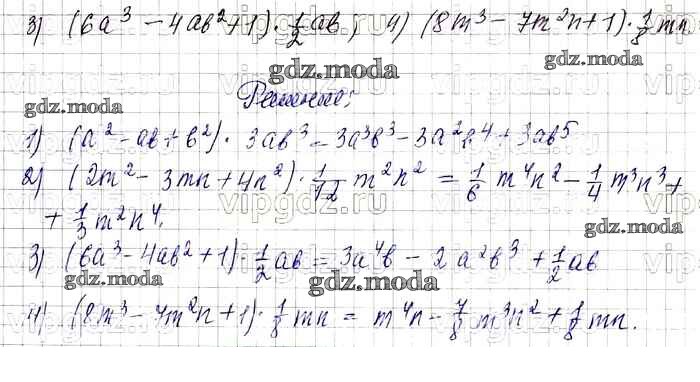 3) (6a³ - 4ab² + 1) · 1/2 ab; 4) (8m³ - 7m²n + 1) · 1/8 mn.
gdz.moda gdz.moda
Решение:
gdz.moda
1) (a² - ab + b²) · 3ab³ = 3a³b³ - 3a²b⁴ + 3ab⁵
2) (2m² - 3mn + 4n²) · 1/12 m²n² = 1/6 m⁴n² - 1/4 m³n³ +
+ 1/3 m²n⁴.
gdz.moda
3) (6a³ - 4ab² + 1) · 1/2 ab = 3a⁴b - 2a²b³ + 1/2 ab
gdz.moda gdz.moda
4) (8m³ - 7m²n + 1) · 1/8 mn = m⁴n - 7/8 m³n² + 1/8 mn.